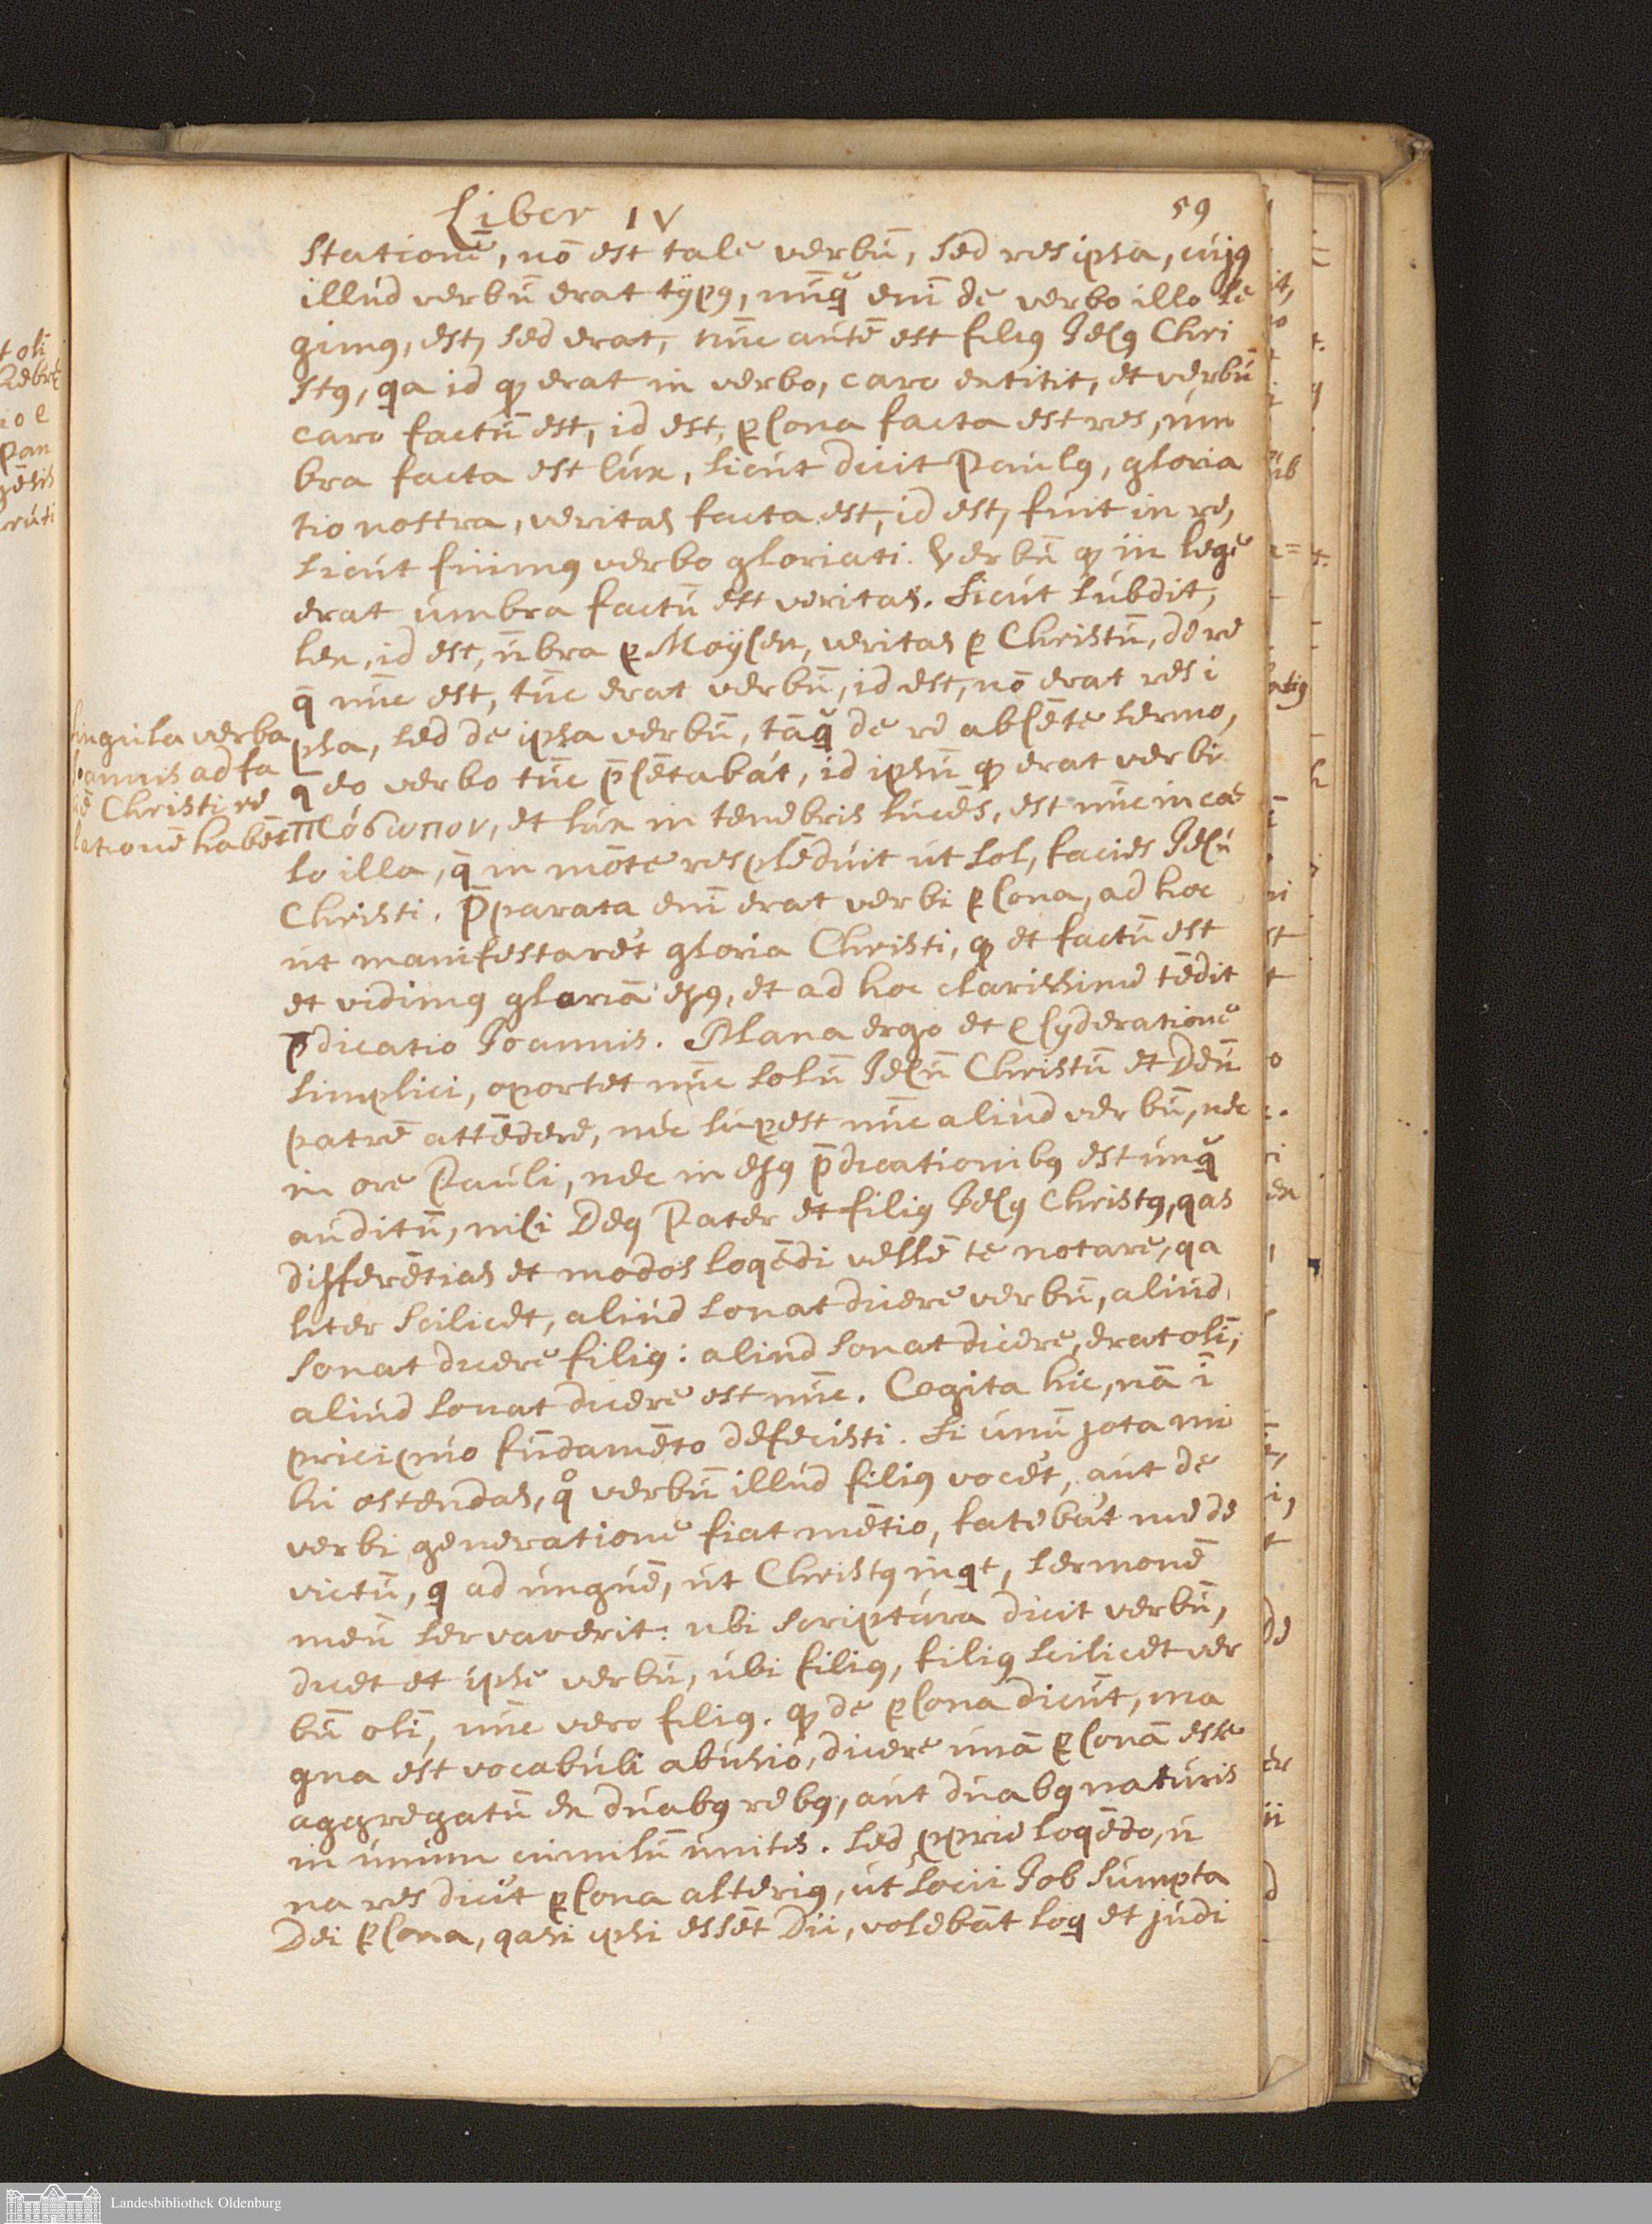 Liber IV 59
statione, nō est tale verbū, sed res ipsa, cujꝰ
illud verbū erat typꝰ, nūq̄ enī de verbo illo le
gimꝰ, est, sed erat, nūc autē est filiꝰ Jesꝰ Chri
stꝰ, qa id ꝙ erat in verbo, caro extitit, et verbū
caro factū est, id est, ꝑsona facta est res, um
bra facta est lux, sicut dicit Paulꝰ, gloria
tio nostra, veritas facta est, id est, fuit in re,
sicut fuimꝰ verbo gloriati. Verbū ꝙ in lege
erat umbra factū est veritas. Sicut subdit,
lex, id est, ūbra ꝑ Moysen, veritas ꝑ Christū, de re
q̄ nūc est, tūc erat verbū, id est, nō erat res i
psa, sed de ipsa verbū, tāq̄ de re absēte sermo,
q eo verbo tūc p̄sētabāt, id ipsū ꝙ erat verbi
πσόσωπον, et lux in tenebris lucēs, est nūc in cæ
lo illa, q̄ in mōte resplēduit ut sol, facies Jesu
Christi. P̄parata enī erat verbi ꝑsona, ad hoc
ut manifestaret gloria Christi, ꝙ et factū est
et vidimꝰ gloriā ejꝰ, et ad hoc clarissime tēdit
p̄dicatio Joannis. Plana ergo et cōsyderatione
simplici, oportet nūc solū Jesū Christū et Deū
patrē attēdere, nec supest nūc aliud verbū, nec
in ore Pauli, nec in ejꝰ p̄dicationibꝰ est unq̄
auditū, nisi Deꝰ Pater et filiꝰ Jesꝰ Christꝰ, qas
differētias et modos loqēdi vellē te notare, qa
liter scilicet, aliud sonat dicere verbū, aliud
sonat dicere filiꝰ: aliud sonat dicere, erat olī,
aliud sonat dicere est nūc. Cogita hic, nā ī
pricipuo fūdamēto defecisti. Si unū jota mi
hi ostendas, qo verbū illud filiꝰ vocet, aut de
verbi generatione fiat mētio, fatebor me de
victū, q ad unguē, ut Christꝰ inqt, sermonē
meū servaverit: ubi scriptura dicit verbū,
dicet et ipse verbū, ubi filiꝰ, filiꝰ scilicet ver
bū olī, nūc vero filiꝰ. ꝙ de ꝑsona dicūt, ma
gna est vocabuli abusio, dicere unā ꝑsonā esse
aggregatū ex duabꝰ rebꝰ, aut duabꝰ naturis
in unum cumulū unitis. Sed ꝓprie loqēdo, u
na res dicit ꝑsona alteriꝰ, ut socii Job sumpta
Dei ꝑsona, qasi ipsi essēt Dii, volebāt loq et judi
singula verba
Joannis ad fa
Christi re
lationē habēt